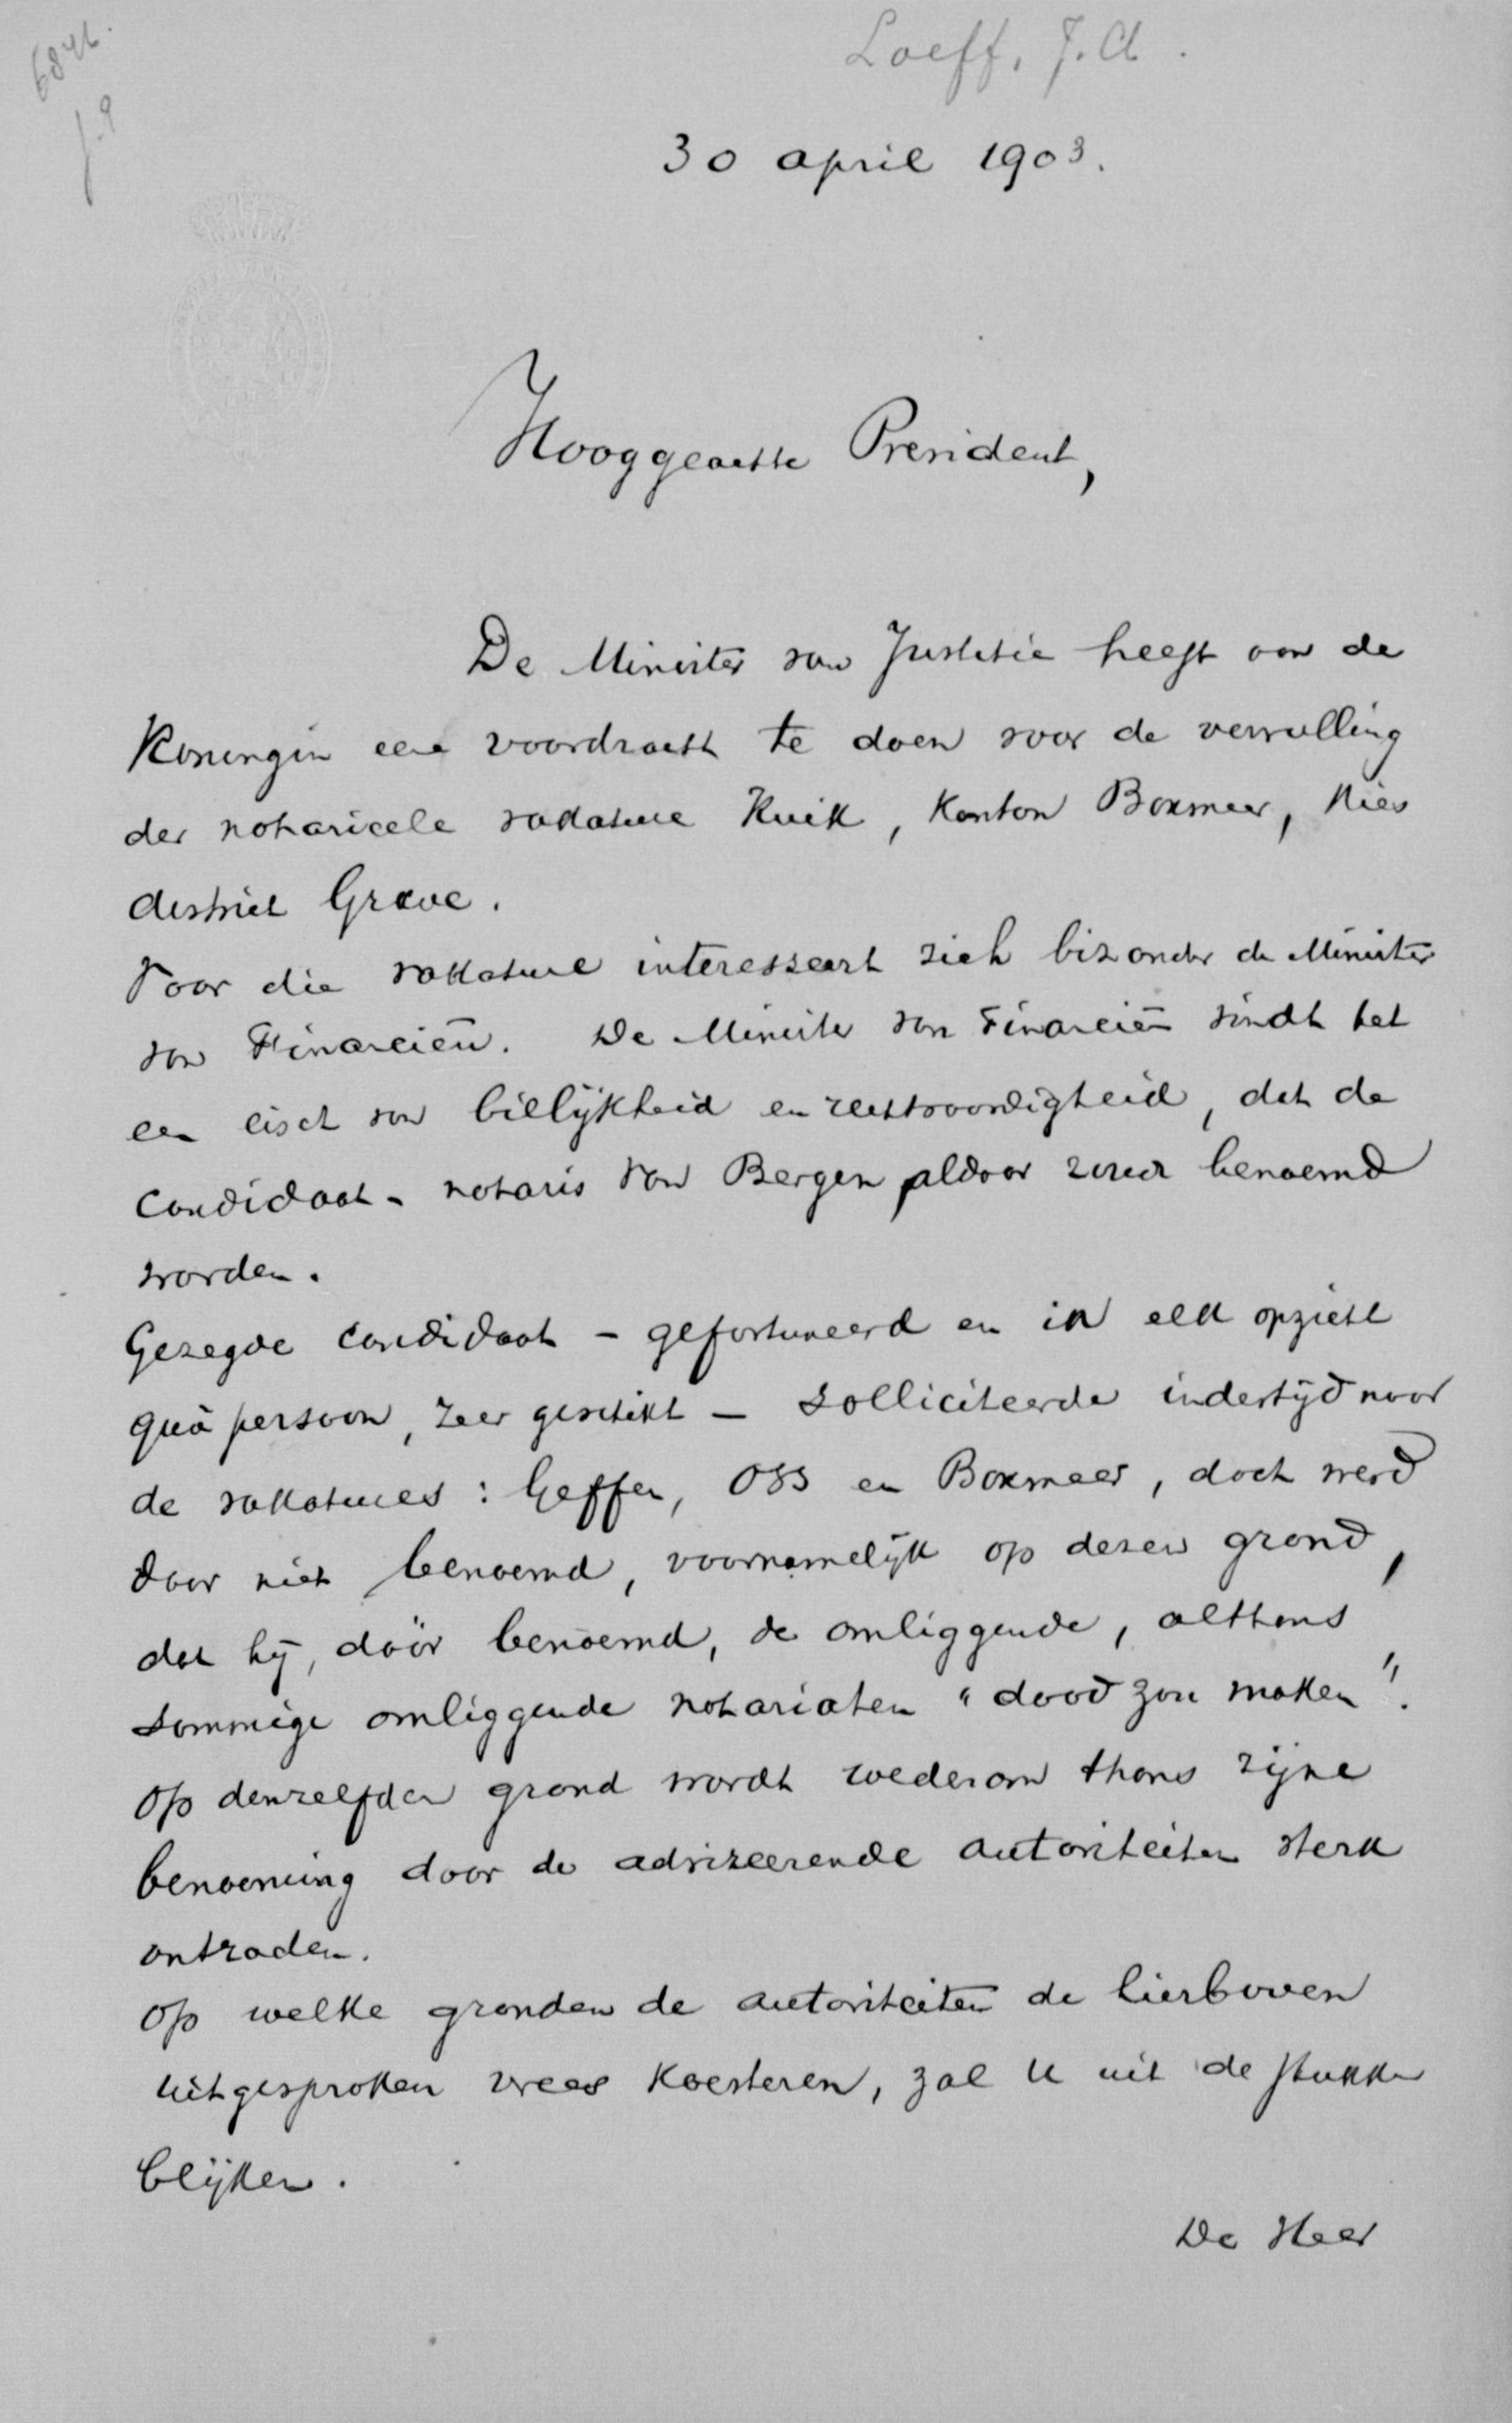 Loeff, J. A.
30 april 1903.
Hooggeachte President,
De Minister van Justitie heeft aan de
Koningin eene voordracht te doen voor de vervulling
der notarieele vakature Kuik, Kanton Boxmeer, Kies
district Grave.
Voor die vakature interesseert zich bizonder de Minister
van Financiën. De Minister van Financiën vindt het
een eisch van billijkheid en rechtvaardigheid, dat de
Candidaat-notaris van Bergen aldaar benoemd
worden.
Gezegde candidaat – gefortuneerd en in elk opzicht
quâ persoon, zeer geschikt – solliciteerde indertijd naar
de vakatures: Geffen, Oss en Boxmeer, doch werd
daar niet benoemd, voornamelijk op dezen grond,
dat hij, dáár benoemd, de omliggende, althans
sommige omliggende notariaten "dood zou maken".
Op denzelfden grond wordt wederom thans zijne
benoeming door de advizeerende autoriteiten sterk
ontraden.
Op welke gronden de autoriteiten de hierboven
uitgesproken vrees koesteren, zal U uit de stukken
blijken.
De Heer